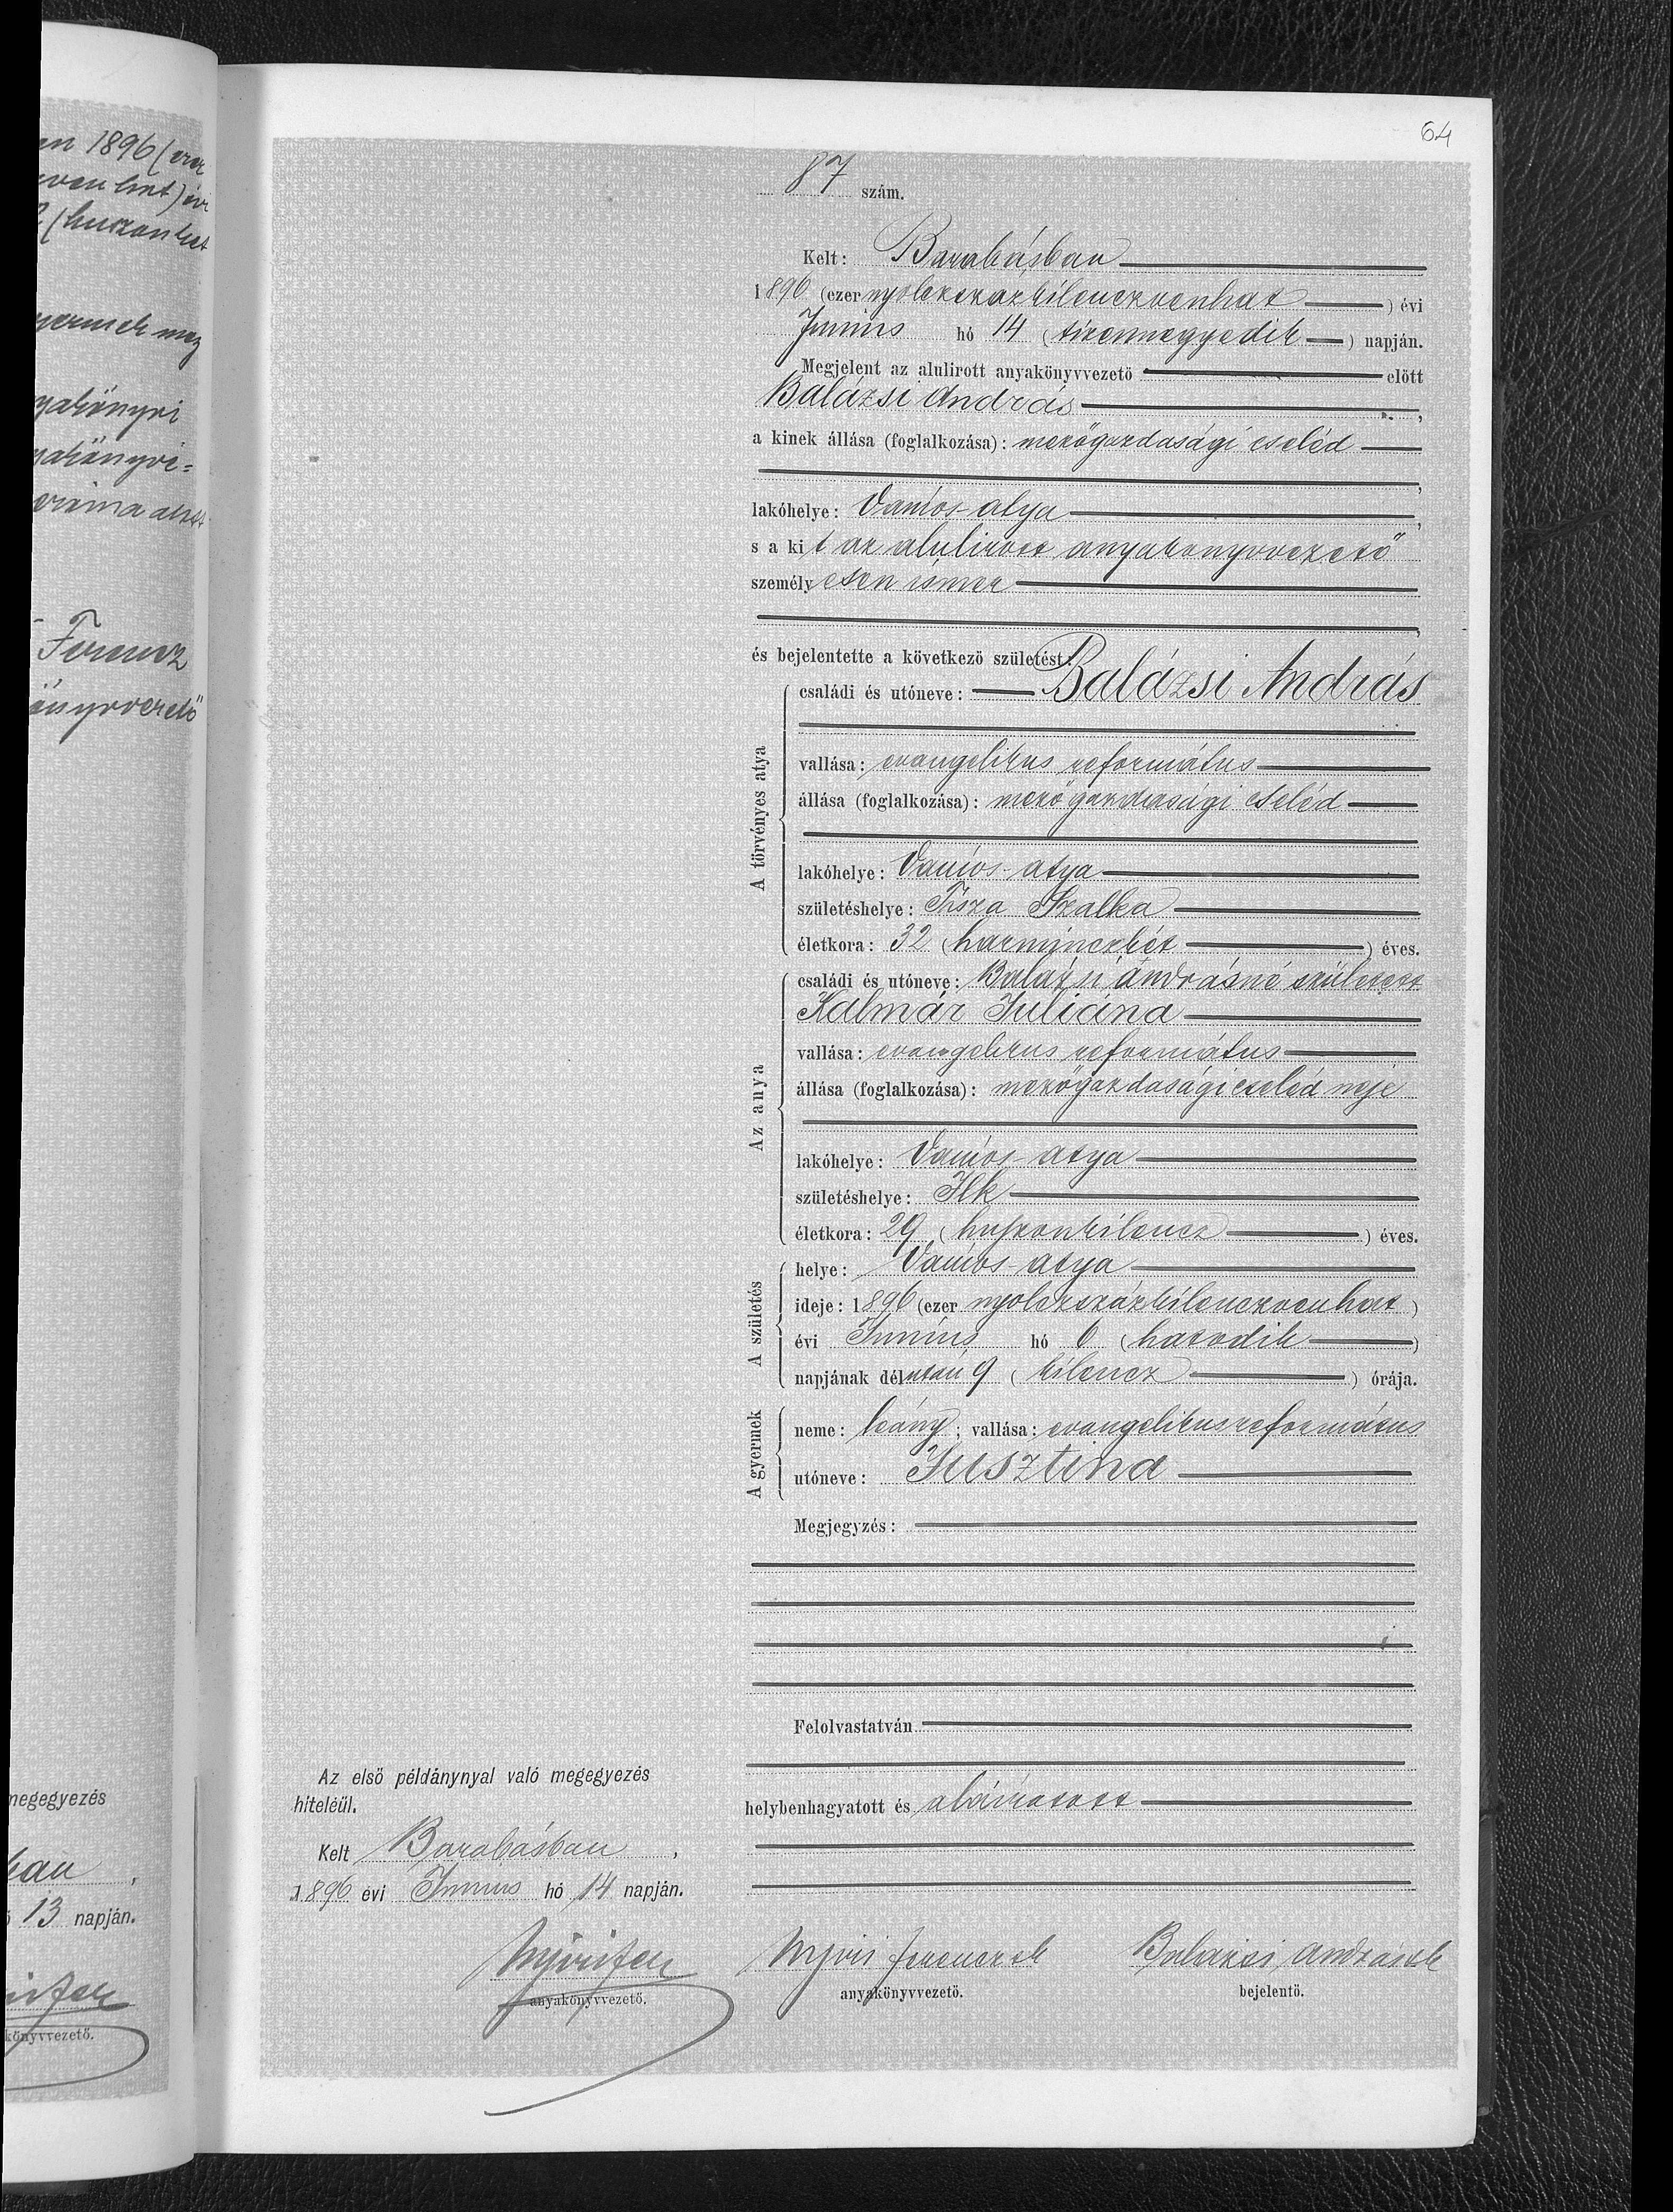 en 1896 (ezer
) évi
(huszonhét
gyermek meg
Ferencz
megegyezés
13 napján.
64
87 szám.
Kelt: Barabásban
1896 (ezer nyolczszázkilenczvenhat) évi
Junius hó 14 (tizennegyedik) napján.
Megjelent az alulirott anyakönyvvezető előtt
Balázsi András,
a kinek állása (foglalkozása): mezőgazdasági cseléd
,
lakóhelye: Vámos-atya,
s a kit az alulirott anyakönyvvezető
személyesen ismer
,
és bejelentette a következő születést:
A törvényes atya
családi és utóneve: Balázsi András
vallása: evangelikus református
állása (foglalkozása): mezőgazdasági cseléd
lakóhelye: Vámos-atya
születéshelye: Tisza Szalka
életkora: 32 (harminczkét) éves.
Az anya
családi és utóneve: Balázsi Andrásné született
Kalmár Juliána
vallása: evangelikus református
állása (foglalkozása): mezőgazdasági cseléd neje
lakóhelye: Vámos-atya
születéshelye: Ilk
életkora: 29 (huszonkilencz) éves.
A születés
helye: Vámos-atya
ideje: 1896 (ezer nyolczszázkilenczvenhat)
évi Junius hó 6 (hatodik)
napjának délután 9 (kilencz) órája.
A gyermek
neme: leány; vallása: evangelikus református
utóneve: Jusztina
Megjegyzés:
Felolvastatván
helybenhagyatott és aláiratott
Az első példánynyal való megegyezés
hiteléül.
Kelt Barabásban,
1896 évi Junius hó 14 napján.
anyakönyvvezető.
Nyiri Ferencz sk
anyakönyvvezető.
Balázsi András sk
bejelentő.